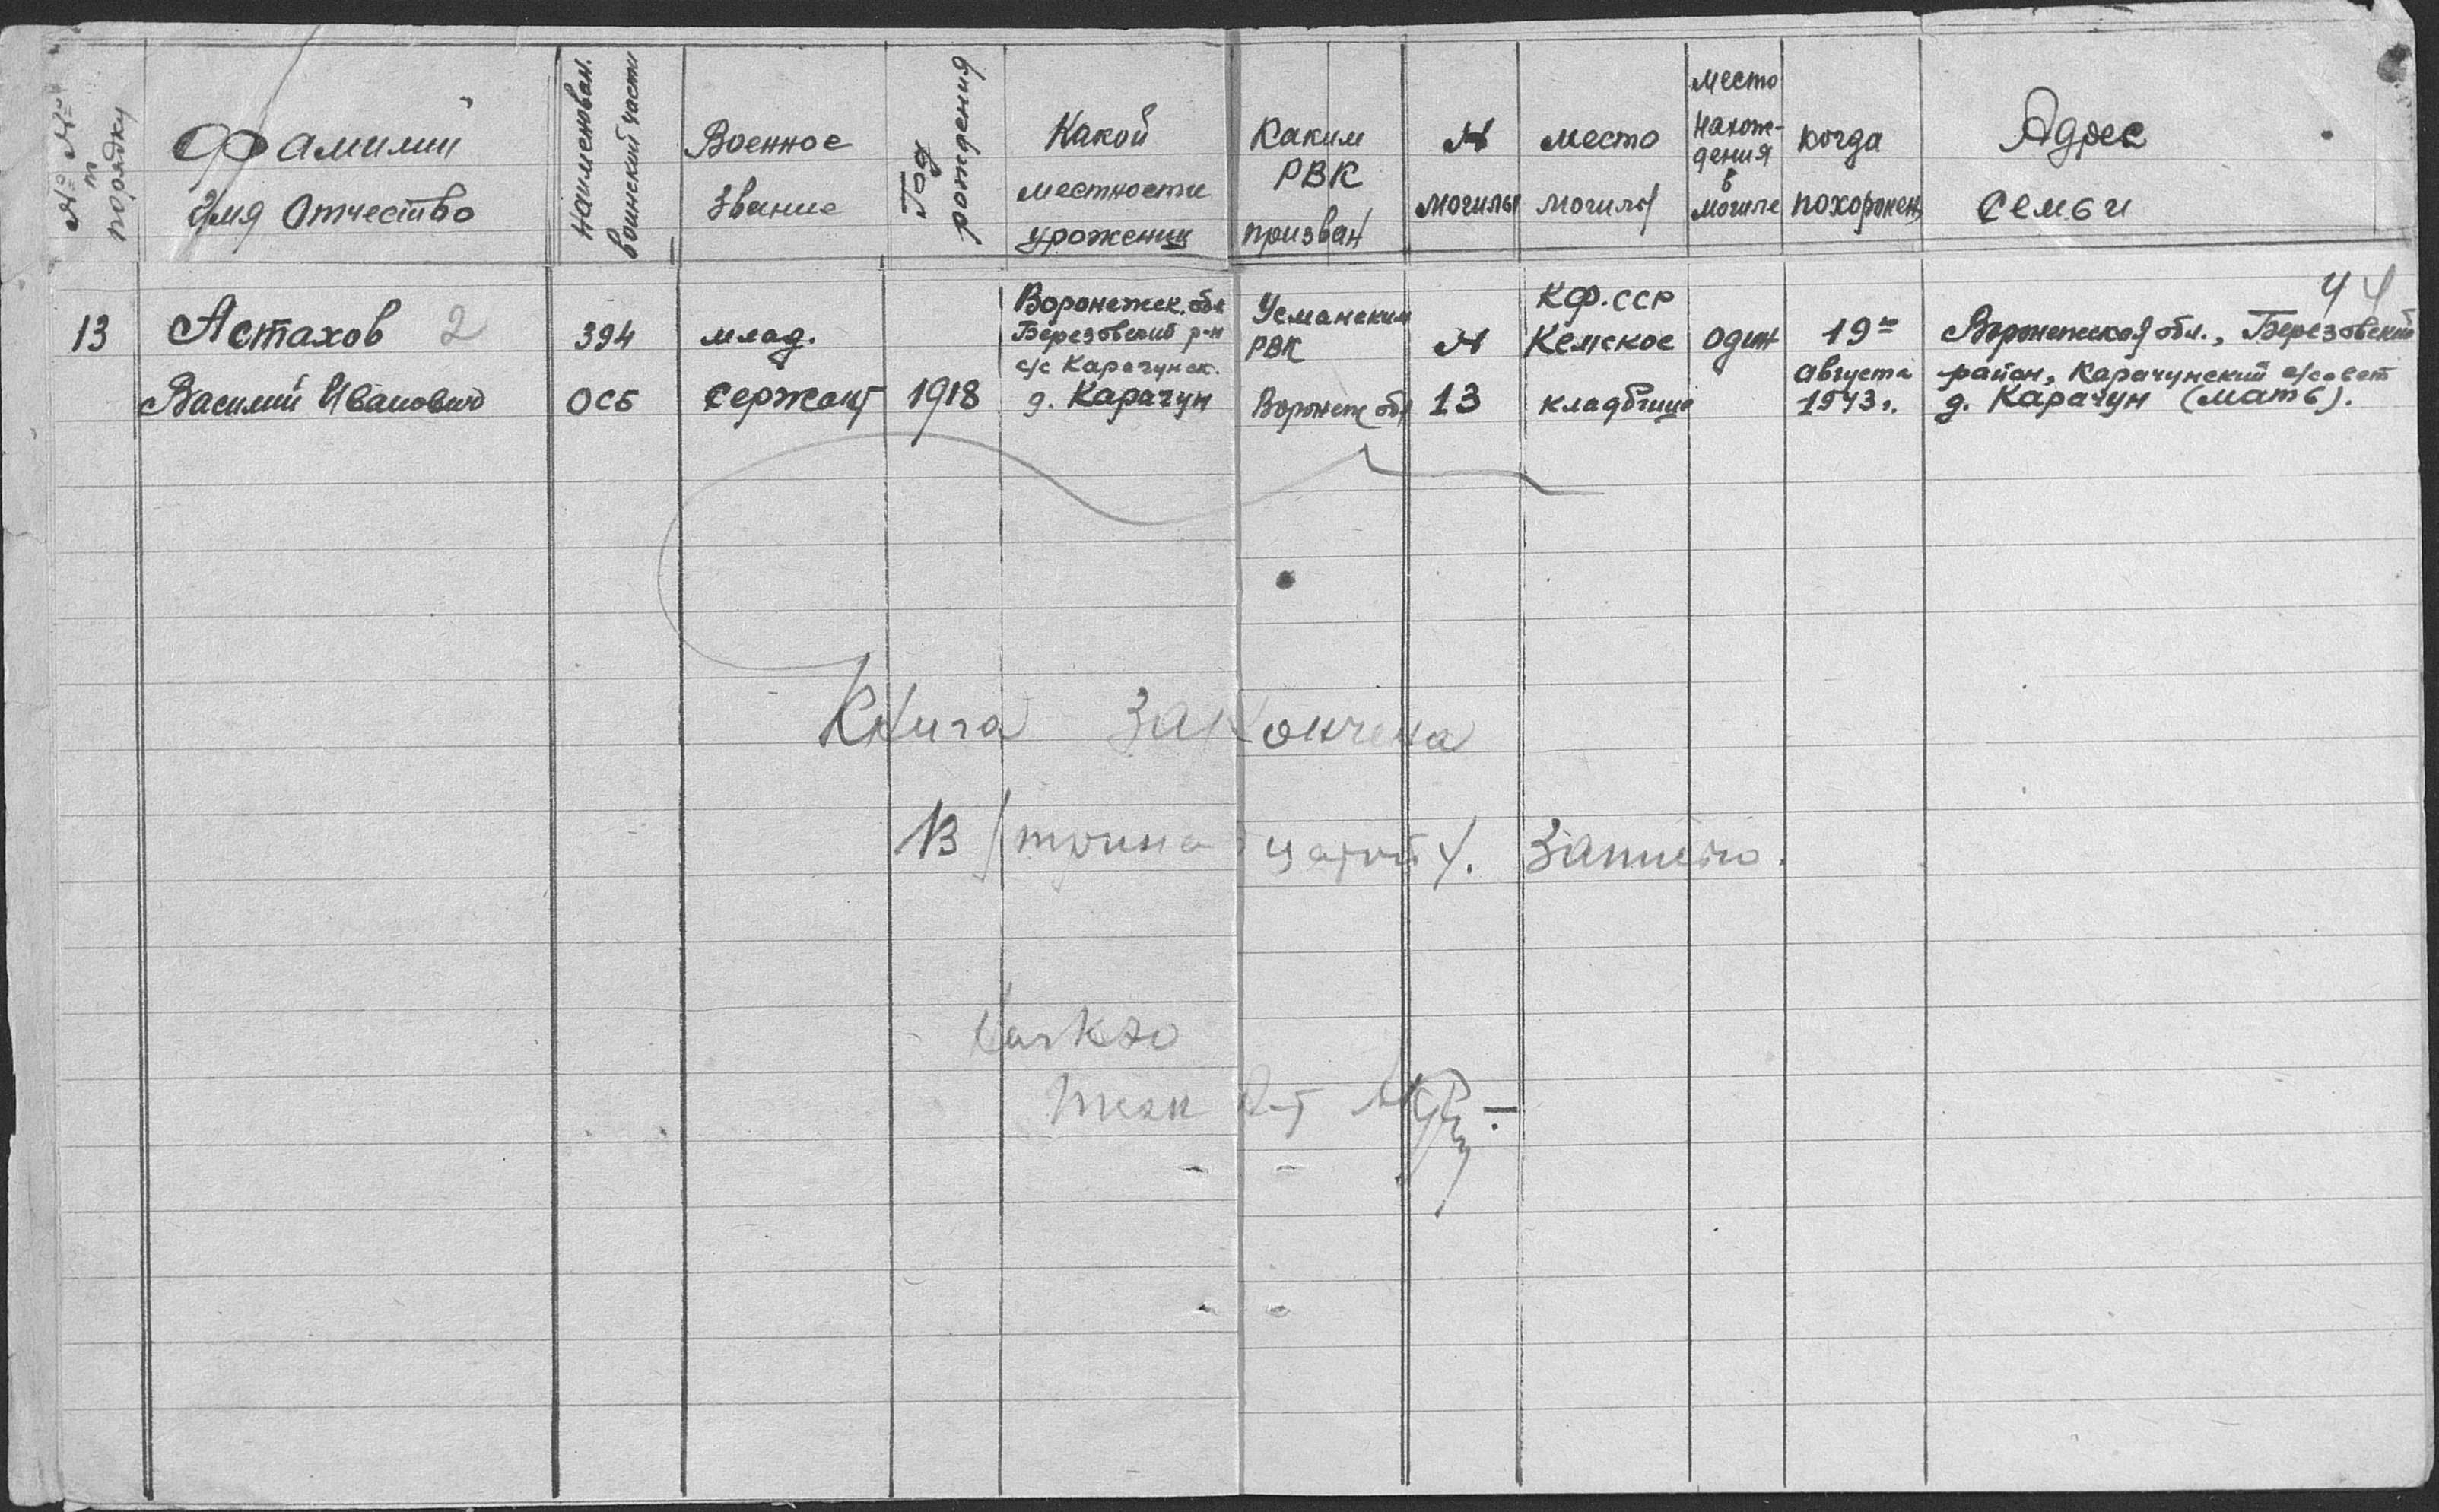 № № п порядку
Фамилии Имя Отчество
Наименован. воинский части
Военное звание
Год рождения
Какой местности уроженец
Каким РВК призван
№ могилы
место могилы
место нахождения в могиле
когда похоронен
Адрес семьи
44
13
Астахов 2
Василий Иванович
394
ОСБ
млад.
сержант
1918
Воронежск. обл
Березовский р-н
с/с Карачунск.
д. Карачун
Усманским
РВК
Воронеж обл
№
13
КФ.ССР
Кемское
кладбище
один
19го
августа
1943г.
Воронежская обл., Березовский
район, Карачунский с/совет
д. Карачун (мать).
Книга закончена
13 /тринадцатой/. записью.